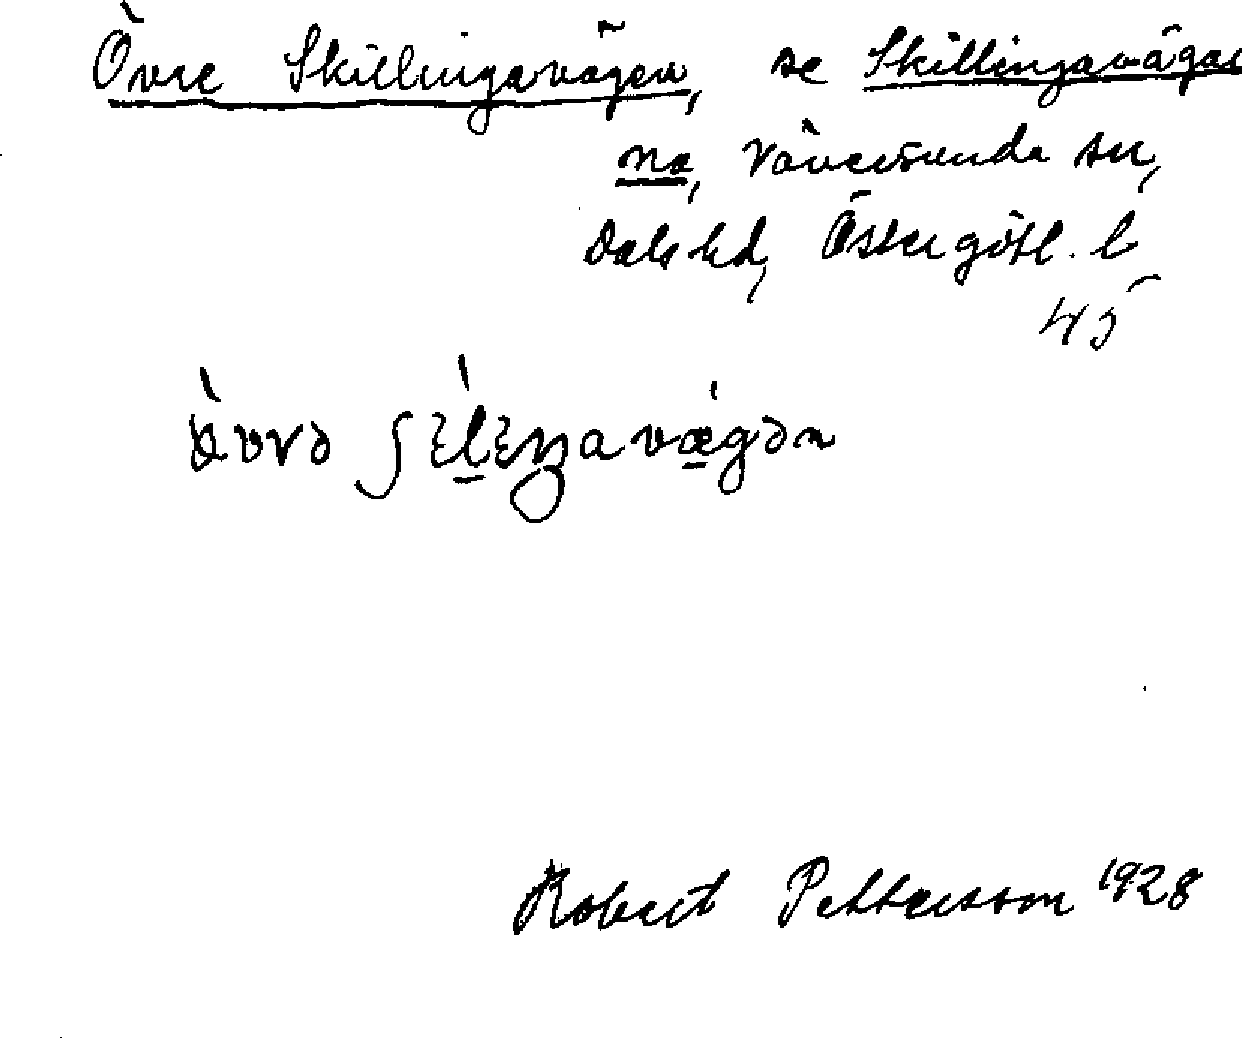 Övre Skillingavägen, se Skillingavägar
na, Väversunda sn,
Dals hd, Östergötl. l
45
Robert Pettersson 1928